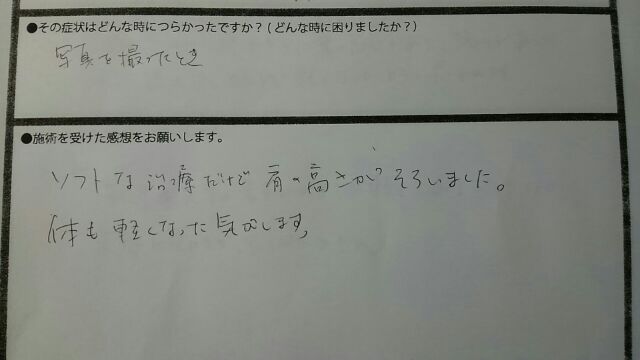 ●その症状はどんな時につらかったですか？(どんな時に困りましたか？)
写真を撮ったとき
●施術を受けた感想をお願いします。
ソフトな治療だけで肩の高さがそろいました。
体も軽くなった気がします。